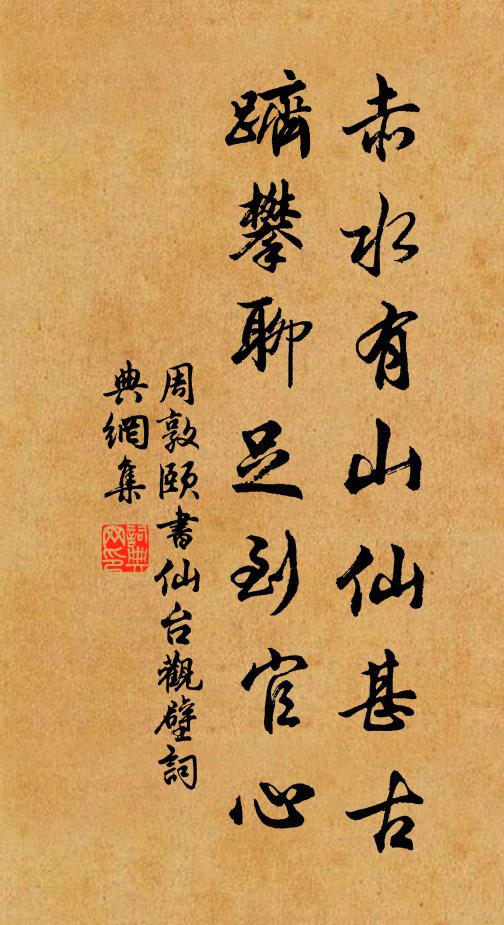 赤水有山仙甚古
躋攀聊足到官心
周敦頤書仙台觀壁詞
典網集
詞典
网印